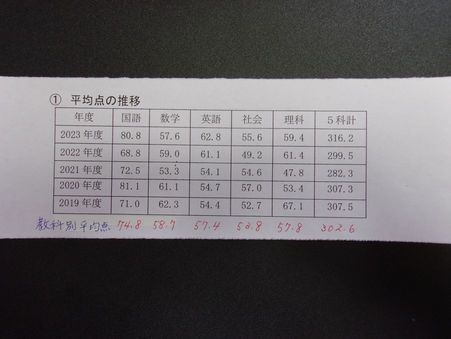 ① 平均点の推移
年度 国語 数学 英語 社会 理科 5科計
2023年度 80.8 57.6 62.8 55.6 59.4 316.2
2022年度 68.8 59.0 61.1 49.2 61.4 299.5
2021年度 72.5 53.3 54.1 54.6 47.8 282.3
2020年度 81.1 61.1 54.7 57.0 53.4 307.3
2019年度 71.0 62.3 54.4 52.7 67.1 307.5
教科別平均点 74.8 58.7 57.4 53.8 57.8 302.6